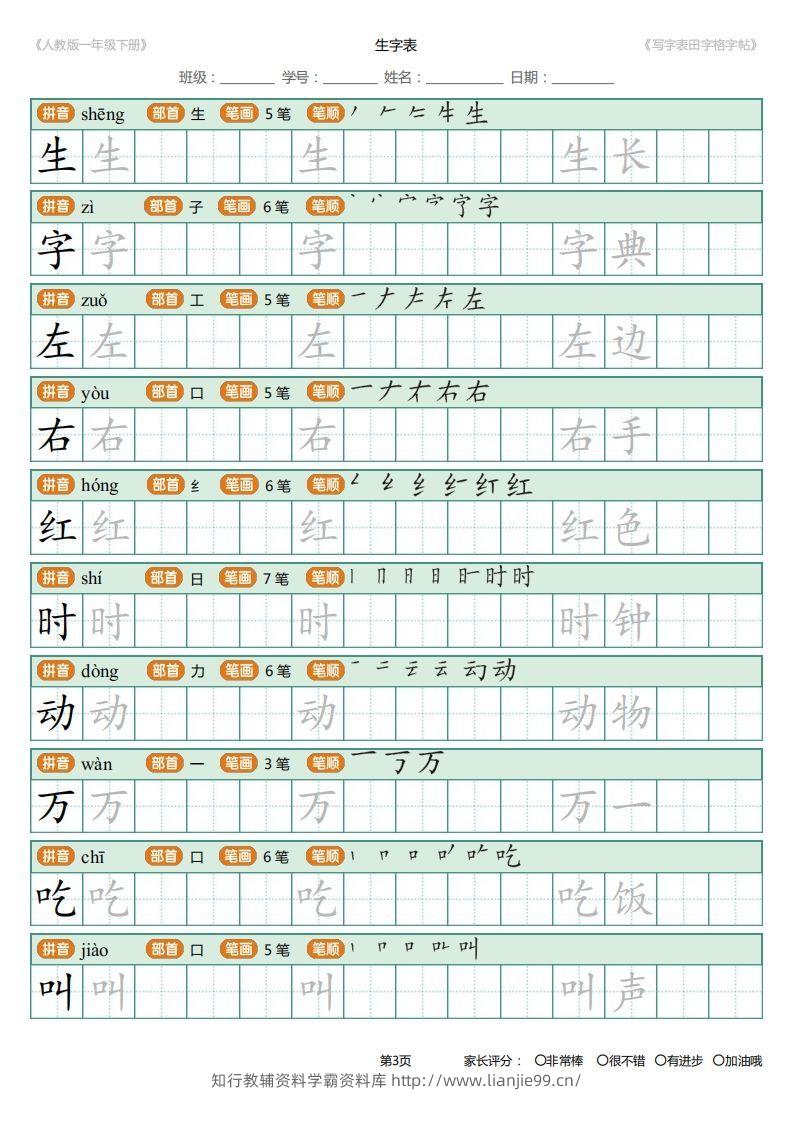 《人教版一年级下册》 生字表 《写字表田字格字帖》
班级：________ 学号：________ 姓名：___________ 日期：_________
拼音 shēng 部首 生 笔画 5 笔 笔顺
生 生 生 生 长
拼音 zì 部首 子 笔画 6 笔 笔顺
字 字 字 字 典
拼音 zuǒ 部首 工 笔画 5 笔 笔顺
左 左 左 左 边
拼音 yòu 部首 口 笔画 5 笔 笔顺
右 右 右 右 手
拼音 hóng 部首 纟 笔画 6 笔 笔顺
红 红 红 红 色
拼音 shí 部首 日 笔画 7 笔 笔顺
时 时 时 时 钟
拼音 dòng 部首 力 笔画 6 笔 笔顺
动 动 动 动 物
拼音 wàn 部首 一 笔画 3 笔 笔顺
万 万 万 万 一
拼音 chī 部首 口 笔画 6 笔 笔顺
吃 吃 吃 吃 饭
拼音 jiào 部首 口 笔画 5 笔 笔顺
叫 叫 叫 叫 声
第3页 家长评分： 〇非常棒 〇很不错 〇有进步 〇加油哦
知行教辅资料学霸资料库 http://www.lianjie99.cn/